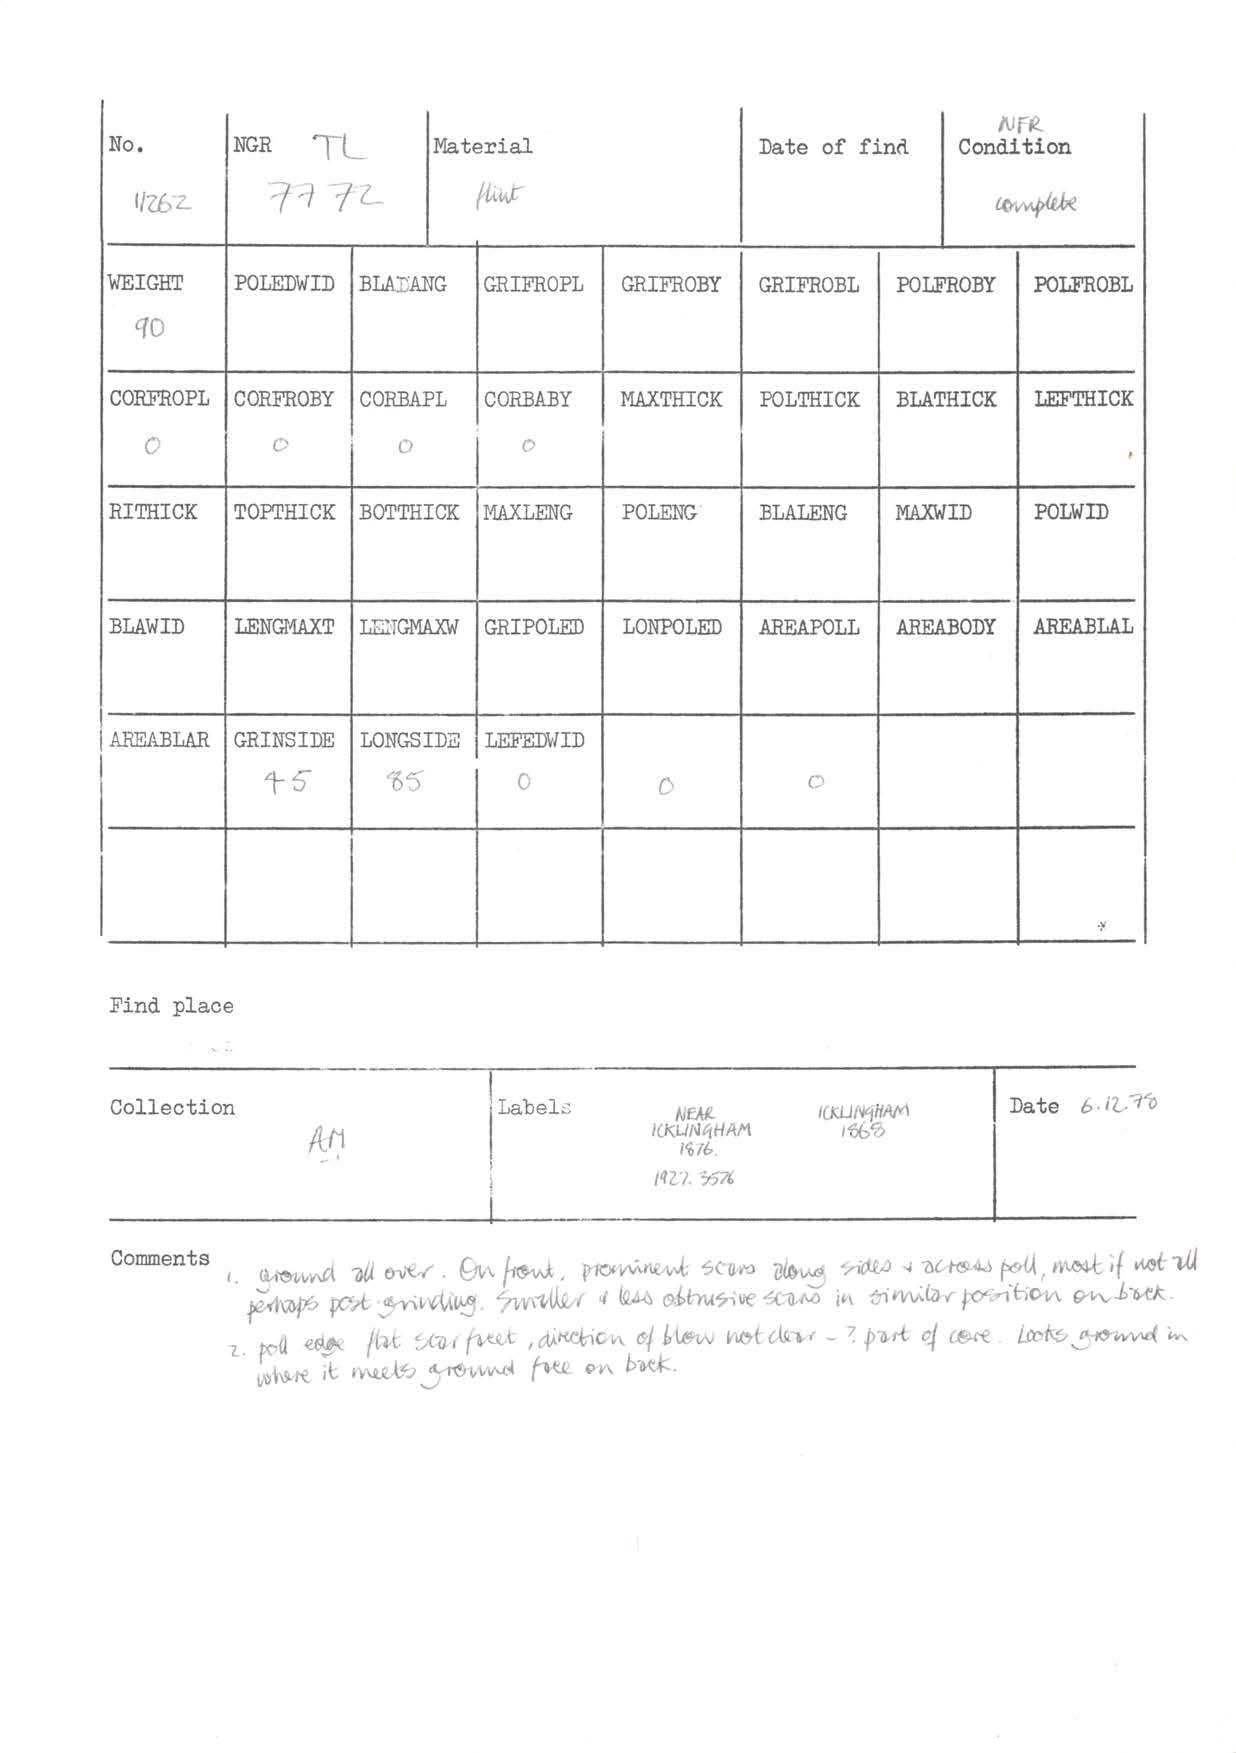 NFR
No. NGR TL Material Date of find Condition
11262 7772 flint complete
WEIGHT POLEDWID BLADANG GRIFROPL GRIFROBY GRIFROBL POLFROBY POLFROBL
90
CORFROPL CORFROBY CORBAPL CORBABY MAXTHICK POLTHICK BLATHICK LEFTHICK
0 0 0 0
RITHICK TOPTHICK BOTTHICK MAXLENG POLENG BLALENG MAXWID POLWID
BLAWID LENGMAXT LENGMAXW GRIPOLED LONPOLED AREAPOLL AREABODY AREABLAL
AREABLAR GRINSIDE LONGSIDE LEFEDWID
45 85 0 0 0
Find place
Collection Labels Date 6.12.78
NEAR ICKLINGHAM
ICKLINGHAM 1868
AM 1876.
1927. 3576
Comments
1. ground all over. On front, prominent scars along sides + across poll, most if not all
perhaps post-grinding. Smaller & less obtrusive scars in similar position on back.
2. poll edge flat scar facet, direction of blow not clear - ? part of core. Looks ground in
where it meets ground face on back.